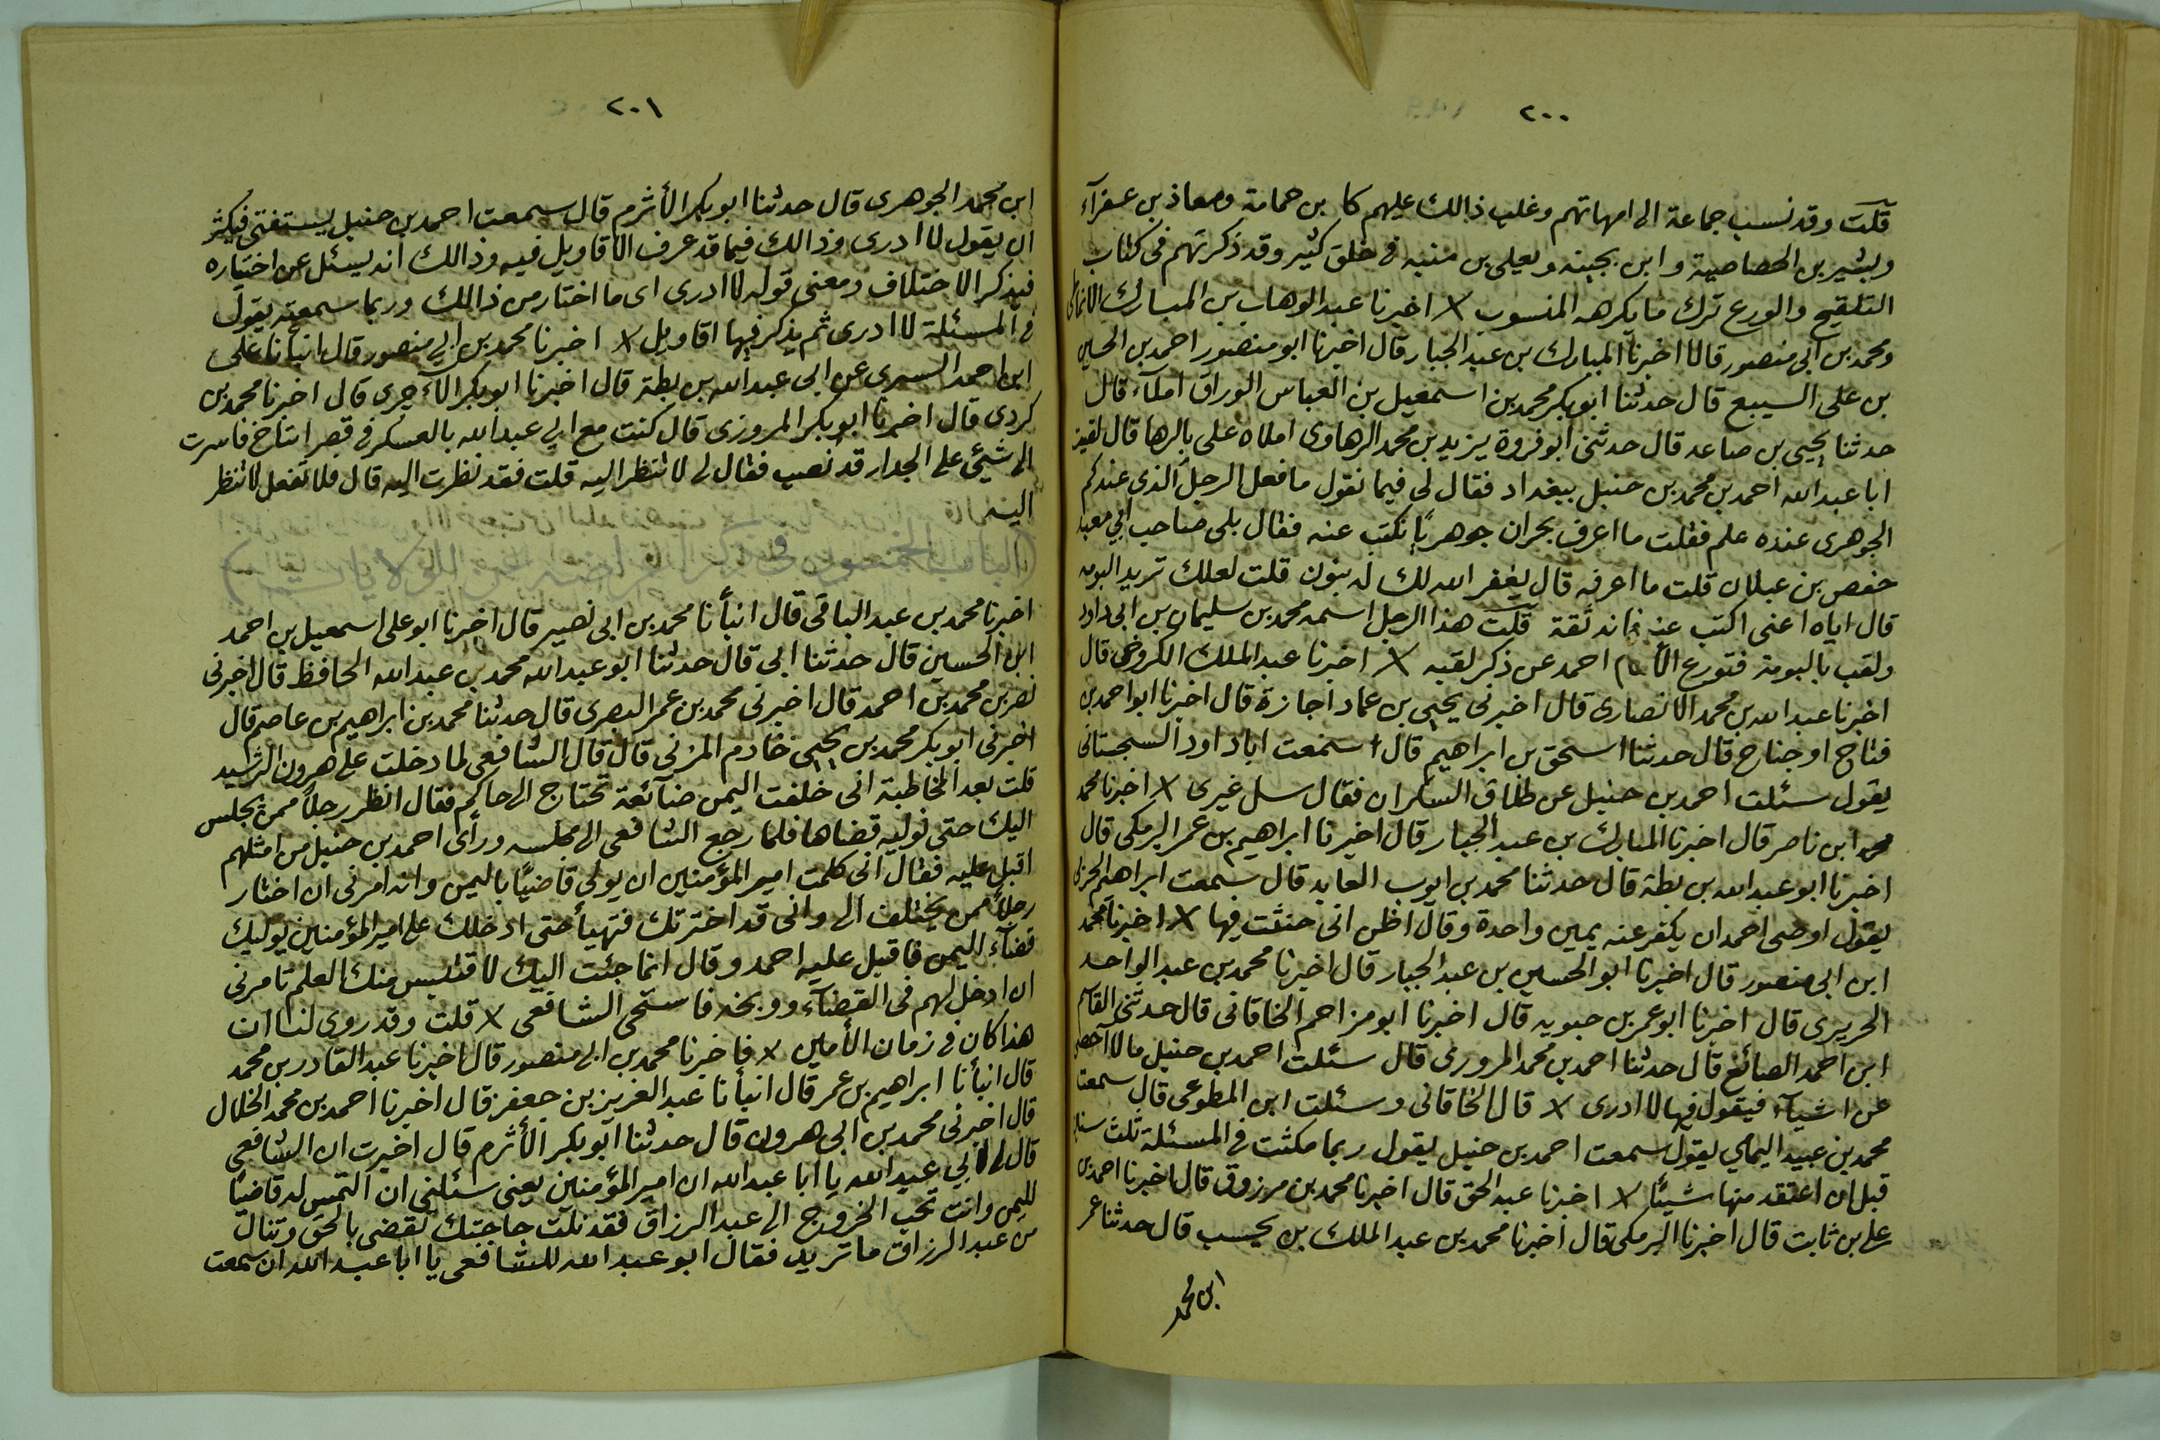 ٢٠٠
قلت وقد نسب جماعة الى امهاتهم وغلب ذالك عليهم كا بن حمامة ومعاذ بن عفرآء
وبشير بن الخصاصية وابن بجينه ويعلى بن منبه فى خلق كثير وقد ذكرتهم فى كتاب
التلقيح والورع ترك ما يكرهه المنسوب × اخبرنا عبد الوهاب بن المبارك الانماطى
ومحمد بن ابى منصور قالا اخبرنا المبارك بن عبد الجبار قال اخبرنا ابو منصور احمد بن الحسين
بن على السيبع قال حدثنا ابو بكر محمد بن اسمعيل بن العباس الوراق املآء قال
حدثنا يحيى بن صاعد قال حدثنى ابو فروة يزيد بن محمد الرهاوى املاه على بالرها قال لقيت
ابا عبد الله احمد بن محمد بن حنبل ببغداد فقال لى فيما نقول ما فعل الرجل الذى عندكم
الجوهرى عنده علم فقلت ما اعرف بحران جوهريًا نكتب عنه فقال بلى صاحب ابي معبد
حفص بن غيلان قلت ما اعرفه قال يغفر الله لك له بنون قلت لعلك تريد البومه
قال اياه اعنى اكتب عنه فانه ثقة قلت هذا الرجل اسمه محمد بن سليمان بن ابى داود
ولقب بالبومة فتورع الأمام احمد عن ذكر لقبه × اخبرنا عبد الملك الكروخى قال
اخبرنا عبد الله بن محمد الانصارى قال اخبرنى يحيى بن عماد اجازة قال اخبرنا ابو احمد بن
فتاح او جناح قال حدثنا اسحق بن ابراهيم قال سمعت ابا داود السجستانى
يقول سئلت احمد بن حنبل عن طلاق السكران فقال سل غيرى × اخبرنا محمد
ابن ناصر قال اخبرنا المبارك بن عبد الجبار قال اخبرنا ابراهيم بن عمر البرمكى قال
اخبرنا ابو عبد الله بن بطة قال حدثنا محمد بن ايوب العابد قال سمعت ابراهيم الحربى
يقول اوصى احمد ان يكفر عنه يمين واحدة وقال اظن انى حنثت فيها × اخبرنا محمد
ابن ابى منصور قال اخبرنا ابو الحسين بن عبد الجبار قال اخبرنا محمد بن عبد الواحد
الحريرى قال اخبرنا ابو عمر بن حيويه قال اخبرنا ابو مزاحم الخاقانى قال حدثنى القاسم
ابن احمد الصائغ قال حدثنا احمد بن محمد المرورى قال سئلت احمد بن حنبل مالا احصى
عن اشيآء فيقول فيها لا ادرى × قال الخاقانى وسئلت ابن المطوعى قال سمعت
محمد بن عبيد اليماي يقول سمعت احمد بن حنبل يقول ربما مكثت فى المسئلة ثلث سنين
قبل ان اعتقد منها شيئًا × اخبرنا عبد الحق قال اخبرنا محمد بن مرزوق قال اخبرنا احمد بن
على بن ثابت قال اخبرنا البرمكى قال اخبرنا محمد بن عبد الملك بن يحسب قال حدثنا عمر
ابن محمد
٢٠١
ابن محمد الجوهرى قال حدثنا ابو بكر الأثرم قال سمعت احمد بن حنبل يستفتى فيكثر
ان يقول لا ادرى وذالك فيما قد عرف الاقاويل فيه وذالك انه يسئل عن اختياره
فيذكر الاختلاف ومعنى قوله لا ادرى اى ما اختار من ذالك وربما سمعته يقول
فى المسئلة لا ادرى ثم يذكر فيها اقاويل × اخبرنا محمد بن ابي منصور قال انبأنا على
ابن احمد السبرى عن ابى عبد الله بن بطة قال اخبرنا ابو بكر الآجرى قال اخبرنا محمد بن
كردى قال اخبرنا ابو بكر المروزى قال كنت مع ابي عبد الله بالعسكر فى قصر ايتاخ فاسرت
الى شيئ على الجدار قد نصب فقال لى لا تنظر اليه قلت فقد نظرت اليه قال فلا تفعل لا تنظر
اليه
اخبرنا محمد بن عبد الباقى قال انبأنا محمد بن ابى نصير قال اخبرنا ابو على اسمعيل بن احمد
ابن الحسين قال حدثنا ابى قال حدثنا ابو عبد الله محمد بن عبد الله الحافظ قال اخبرنى
نصر بن محمد بن احمد قال اخبرنى محمد بن عمر البصرى قال حدثنا محمد بن ابراهيم بن عاصم قال
اخبرنى ابو بكر محمد بن يحيى خادم المزنى قال قال الشافعى لما دخلت على هرون الرشيد
قلت بعد المخاطبة انى خلفت اليمن ضآئعة تحتاج الى حاكم فقال انظر رجلا ممن يجلس
اليك حتى نوليه قضاها فلما رجع الشافعى الى مجلسه ورأى احمد بن حنبل من امثلهم
اقبل عليه فقال انى كلمت امير المؤمنين ان يولى قاضيًا باليمن وانه امرنى ان اختار
رجلاً ممن يختلف الى وانى قد اخترتك فتهيأ حتى ادخلك على امير المؤمنين يوليك
قضآء اليمن فاقبل عليه احمد وقال انما جئت اليك لاقتبس منك العلم تأمرنى
ان ادخل لهم فى القضآء ووبخه فاستحى الشافعى × قلت وقد روى لنا ان
هذا كان فى زمان الأمين × فاخبرنا محمد بن ابى منصور قال اخبرنا عبد القادر بن محمد
قال انبأنا ابراهيم بن عمر قال انبأنا عبد العزيز بن جعفر قال اخبرنا احمد بن محمد الخلال
قال اخبرنى محمد بن ابى هرون قال حدثنا ابو بكر الأثرم قال اخبرت ان الشافعى
قال لابي عبد الله يا ابا عبد الله ان امير المؤمنين يعنى سئلنى ان التمس له قاضيًا
لليمن وانت تحب الخروج الى عبد الرزاق فقد نلت حاجتك تقضى بالحق وتنال
من عبد الرزاق ما تريد فقال ابو عبد الله للشافعى يا ابا عبد الله ان سمعت